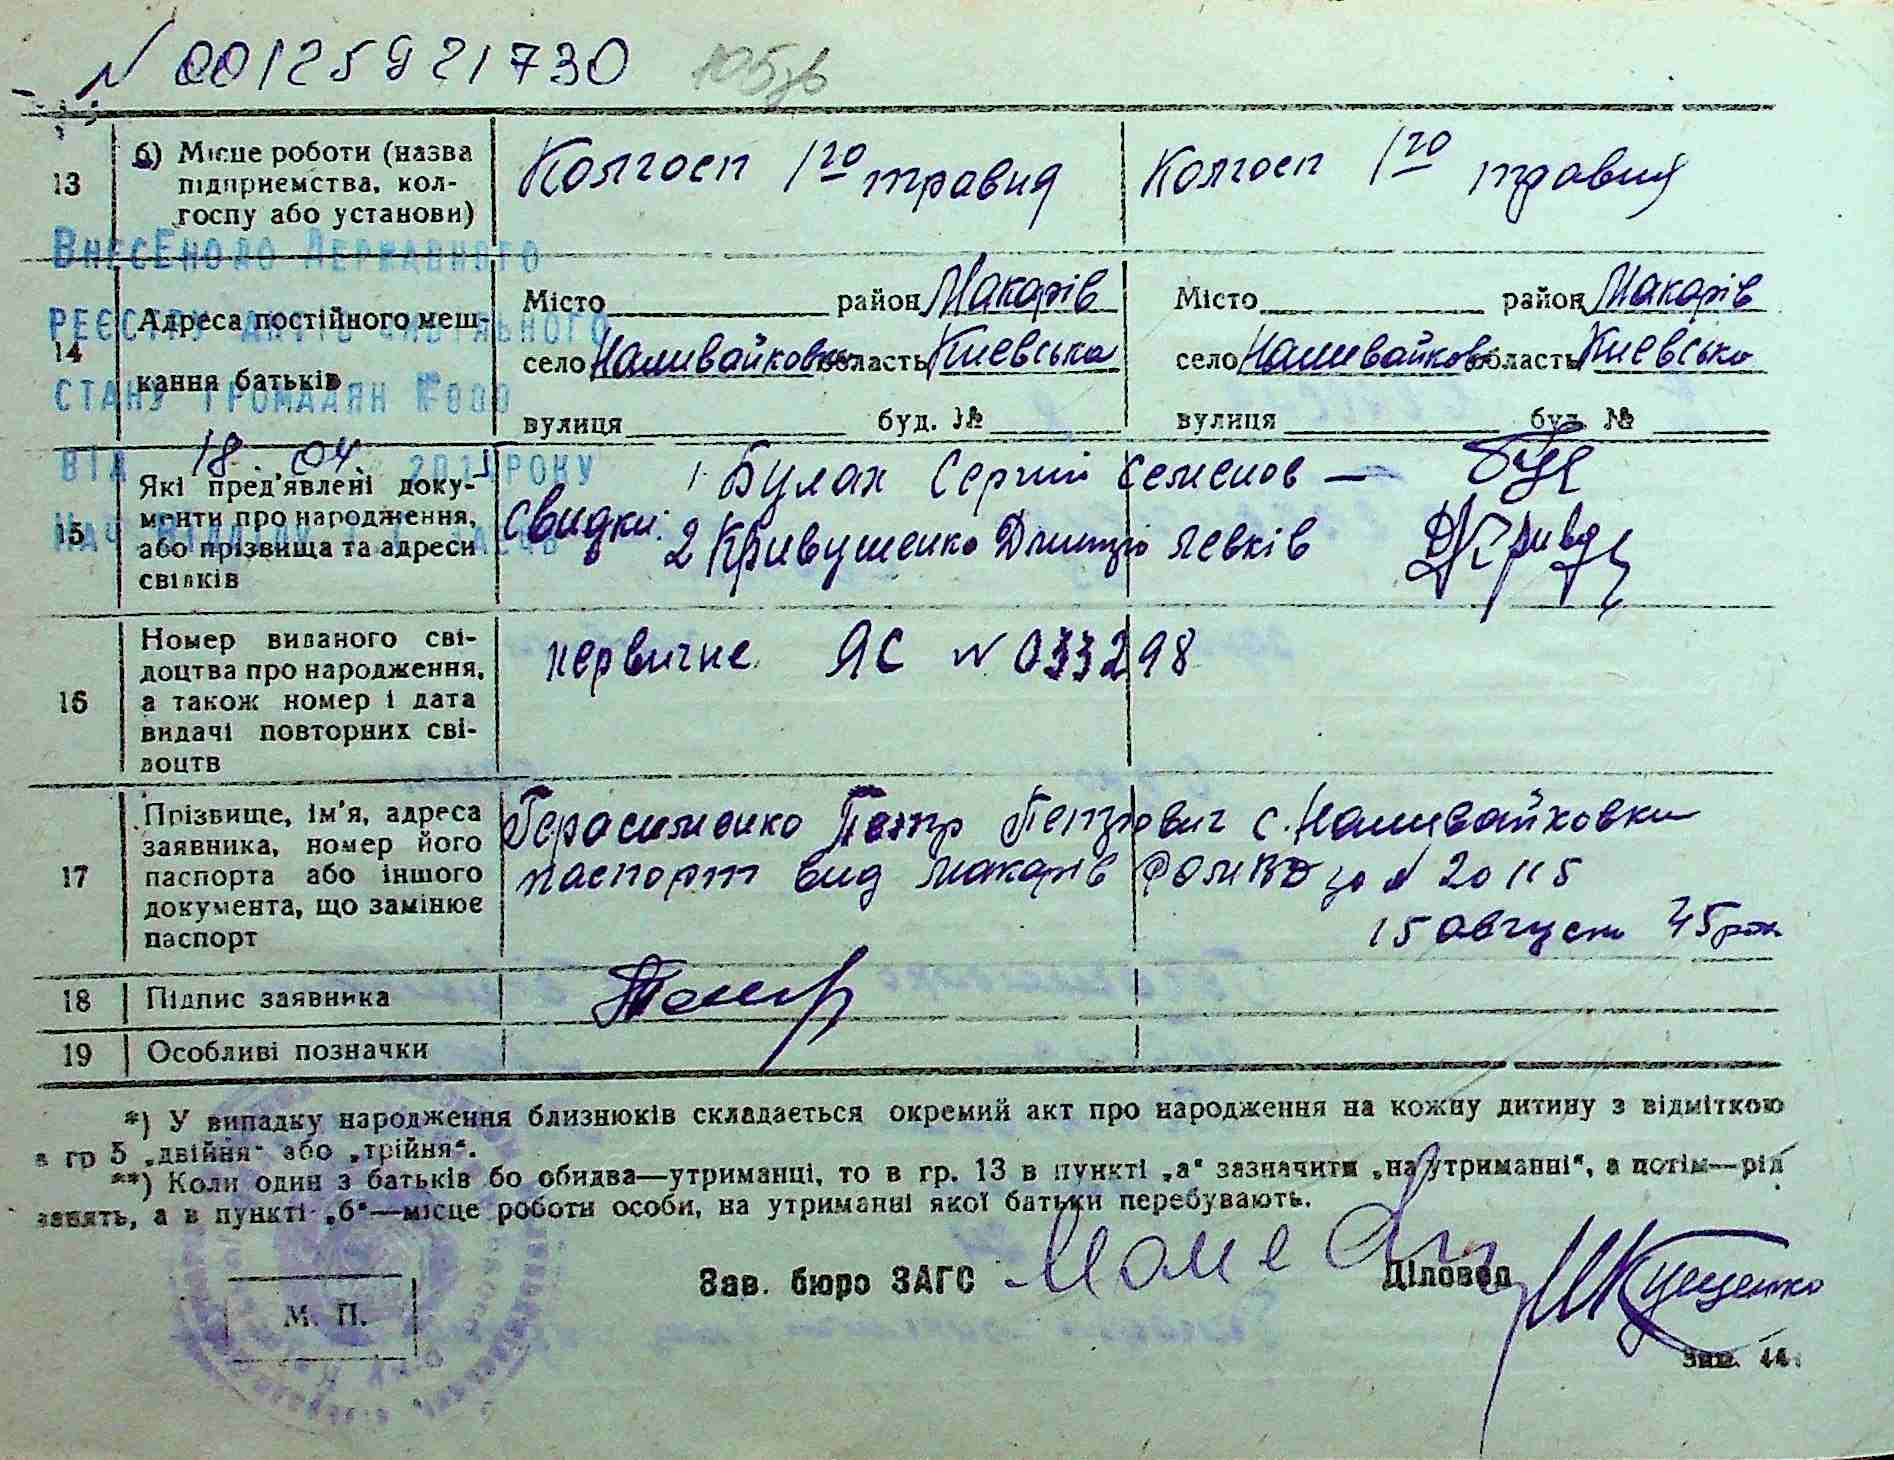 N 00125921730
13 б) Місце роботи (назва підприємства, колгоспу або установи)
Колгосп 1го травня
Колгосп 1го травня
Внесено до Державного
реєстру актів цивільного
стану громадян №000
від 18 04 2011 року
Нач. відділу
14 Адреса постійного мешкання батьків
Місто район Макарів
село Наливайковк область Киевська
вулиця буд. №
Місто район Макарів
село Наливайковк область Киевська
вулиця буд. №
15 Які пред'явлені документи про народження, або прізвища та адреси свідків
свидки: 1 Булах Сергій Семенов —
2 Кривушенко Дмитро Левків
16 Номер виданого свідоцтва про народження, а також номер і дата видачі повторних свідоцтв
первичне ЯС N 033298
17 Прізвище, ім'я, адреса заявника, номер його паспорта або іншого документа, що замінює паспорт
Герасименко Петр Петрович с. Наливайковки
паспорт вид Макарів РОМВД за N 20115
15 август 45 рок
18 Підпис заявника
19 Особливі позначки
*) У випадку народження близнюків складається окремий акт про народження на кожну дитину з відміткою
в гр 5 „двійня" або „трійня".
**) Коли один з батьків бо обидва—утриманці, то в гр. 13 в пункті „а" зазначити „на утриманні", а потім—рід
занять, а в пункті „б"—місце роботи особи, на утриманні якої батьки перебувають.
Зав. бюро ЗАГС
Діловод
М. П.
Зам. 44